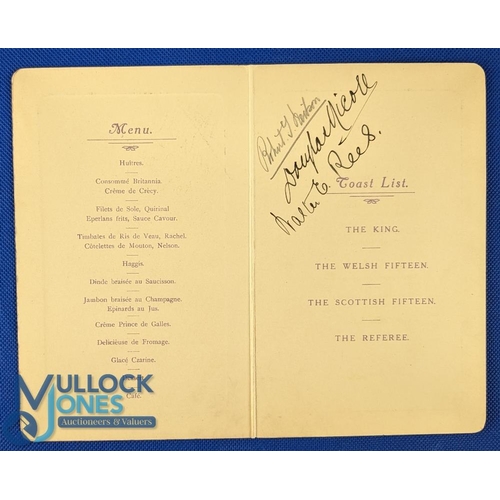 Menu.
Huîtres.
Consommé Britannia.
Crême de Crécy.
Filets de Sole, Quirinal
Eperlans frits, Sauce Cavour.
Timbales de Ris de Veau, Rachel.
Côtelettes de Mouton, Nelson.
Haggis.
Dinde braisée au Saucisson.
Jambon braisée au Champagne.
Epinards au Jus.
Crême Prince de Galles.
Delicieuse de Fromage.
Glacé Czarine.
Café.
Douglas Nicoll
Walter E. Rees.
Toast List.
THE KING.
THE WELSH FIFTEEN.
THE SCOTTISH FIFTEEN.
THE REFEREE.
MULLOCK
JONES
Auctioneers & Valuers